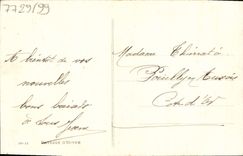 7729/99
A bientôt de vos
nouvelles
bons baisers
à tous
Madame Thénet à
Pouilly en Auxois
Côte d'Or